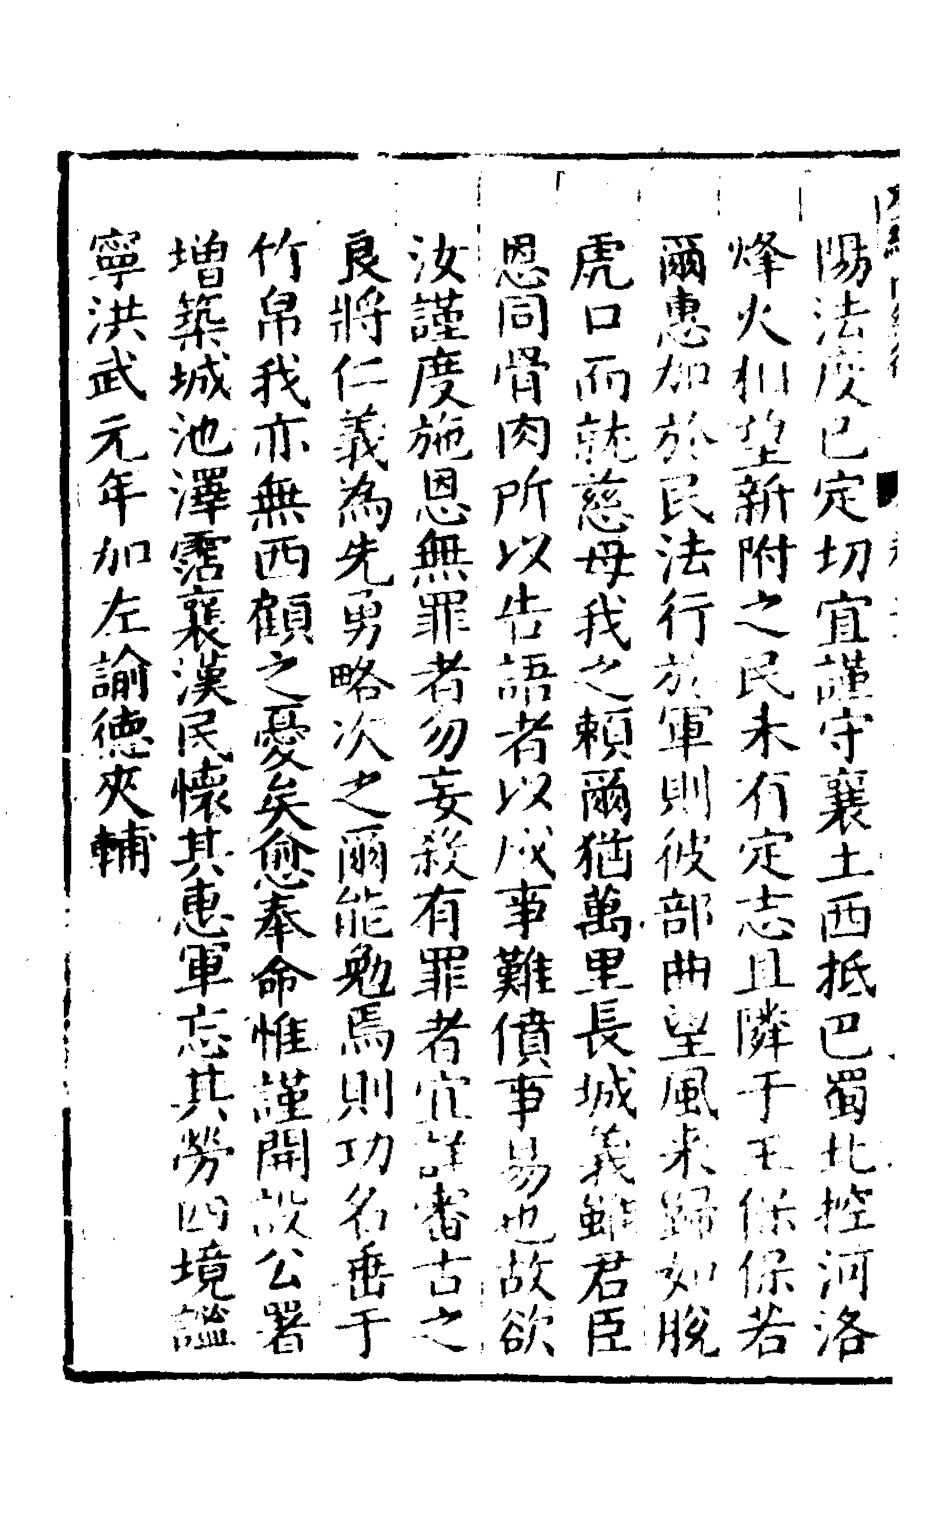 陽法度已定切宜謹守襄土西抵巴蜀北控河洛
烽火相望新附之民未有定志且隣于王保保若
爾惠加於民法行於軍則彼部曲望風来歸如脫
虎口而就慈母我之頼爾猶萬里長城義雖君臣
恩同骨肉所以告語者以成事難僨事易也故欲
汝謹度施恩無罪者勿妄殺有罪者宜詳審古之
良將仁義為先勇略次之爾能勉焉則功名垂于
竹帛我亦無西顧之憂矣愈奉命惟謹開設公署
增築城池澤霑襄漢民懷其惠軍忘其勞四境謐
寧洪武元年加左諭德夾輔